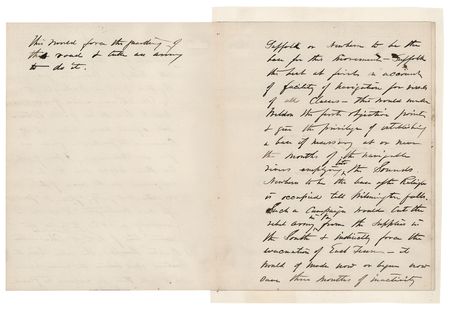 This would force the guarding of
the road & take an army
to do it.
Suffolk or Newbern to be the
base for this movement – Suffolk
the best at first on account
of facility of navigation for vessels
of all Classes – this would make
Weldon the first objective point
& give the privilege of establishing
a base if necessary at or near
the mouths of the navigable
rivers emptying into the Sounds
Newbern to be the base after Raleigh
is occupied till Wilmington falls.
Such a Campaign would cut the
rebel army in Va from the supplies in
the South & indirectly force the
evacuation of East Tenn – it
would if made now or begun now
save three months of inactivity